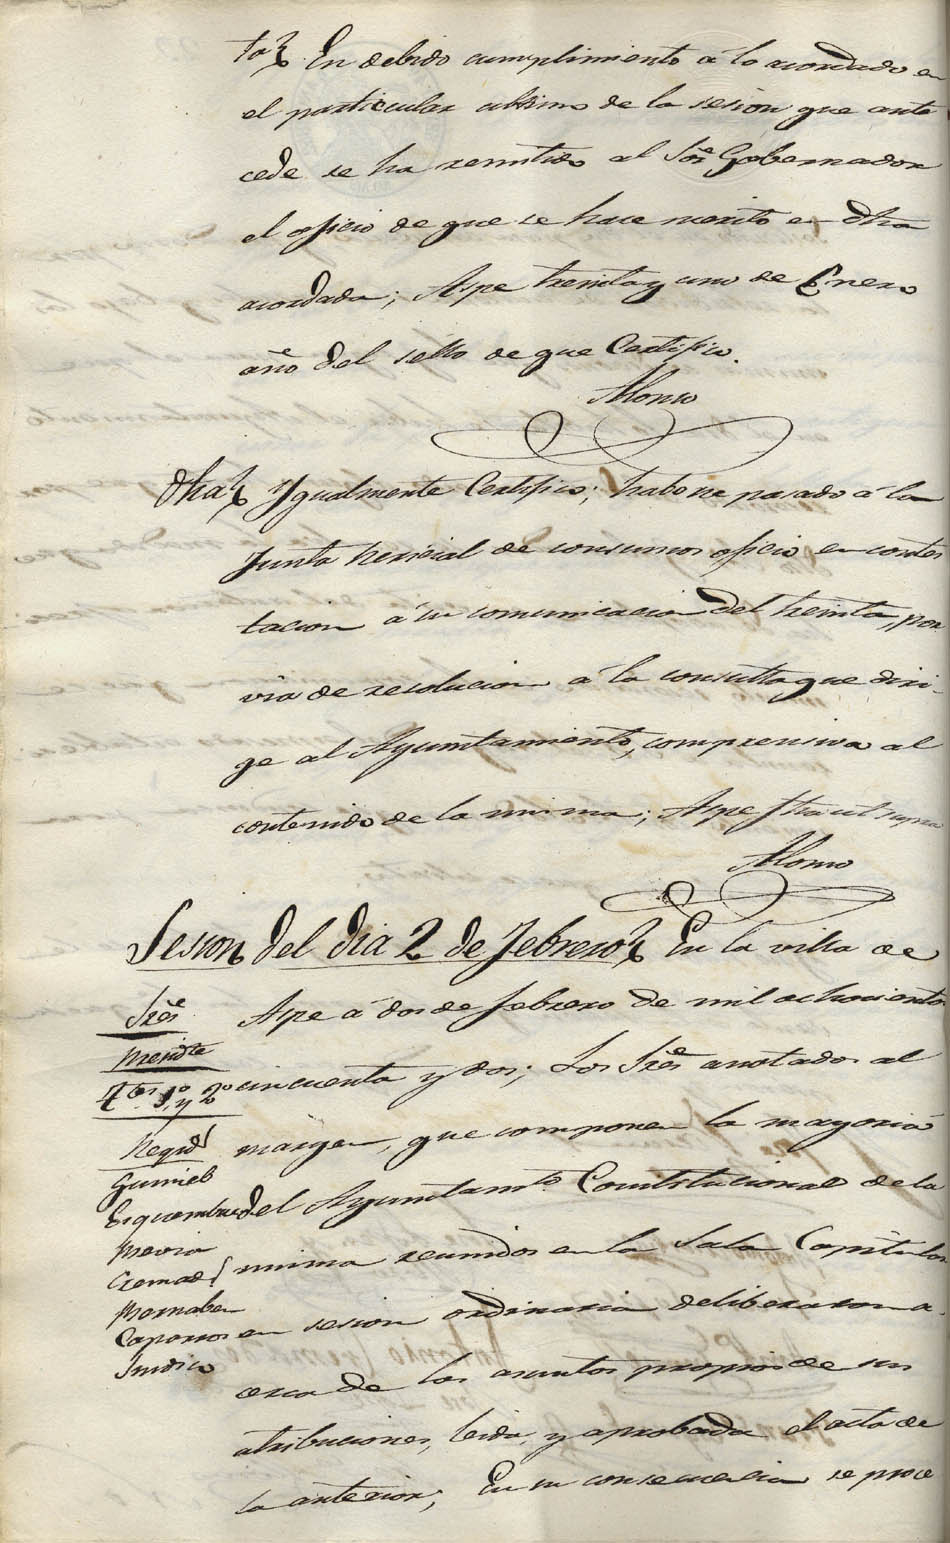 ta} En debido cumplimiento á lo acordado en
el particular ultimo de la sesion que ante
cede se ha remitido al Sor. Gobernador
el oficio de que se hace merito en dha
acordada; Aspe treinta y uno de Enero
año del sello de que Certifico.
Alonso
Otra} Ygualmente Certifico; haberse pasado á la
Junta pericial de consumos oficio en contes
tacion á su comunicacion del treinta, por
via de resolucion á la consulta que diri-
ge al Ayuntamiento, comprensiva al
contenido de la misma; Aspe fha ut supra
Alonso
Sesion del dia 2 de Febrero} En la villa de
Aspe á dos de febrero de mil ochocientos
cincuenta y dos; Los Sres. anotados al
margen, que componen la mayoria
del Ayuntamto. Constitucional de la
misma reunidos en la Sala Capitular
en sesion ordinaria deliberaron a-
cerca de los asuntos propios de sus
atribuciones, leida, y aprobada el acta de
la anterior; En su consecuencia se proce
Sres.
Presidte
Ttes. 1º y 2º
Regids
Gumiel
Esquembre
Mavia
Cremades
Pernabeu
Caparros
Sindico